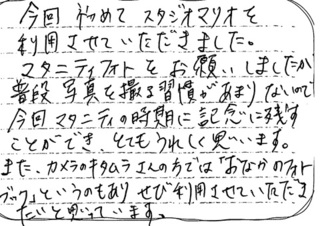 今回 初めて スタジオマリオを
利用させていただきました。
マタニティフォトをお願いしましたが
普段 写真を撮る習慣があまりないので
今回マタニティの時期に記念に残す
ことができ、とてもうれしく思います。
また、カメラのキタムラさんの方では「おなかのフォト
ブック」というのもあり ぜひ利用させていただき
たいと思っています。